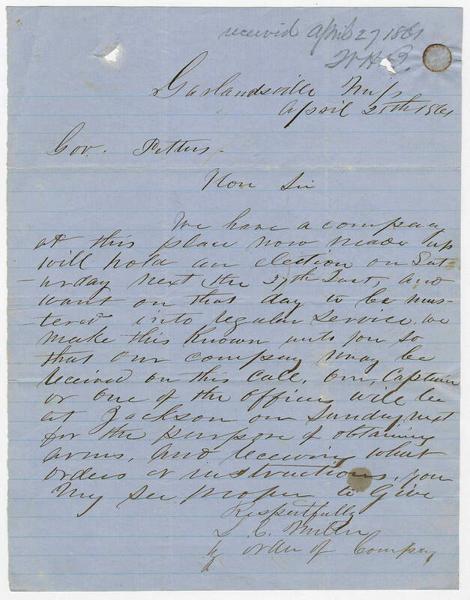 received April 27 1861
Garlandsville Miss
April 25th 1861
Gov. Pettus
Hon Sir
We have a company
at this place now made up
will hold an election on Sat-
urday next the 27th Inst, and
want on that day to be mus-
tered into regular Service, we
make this known unto you so
that our company may be
received on this call, our Captain
or one of the officers will be
at Jackson on Sunday next
for the purpose of obtaining
arms, and receiving what
orders or instructions you
My see proper to Give
Respectfully
by order of Company